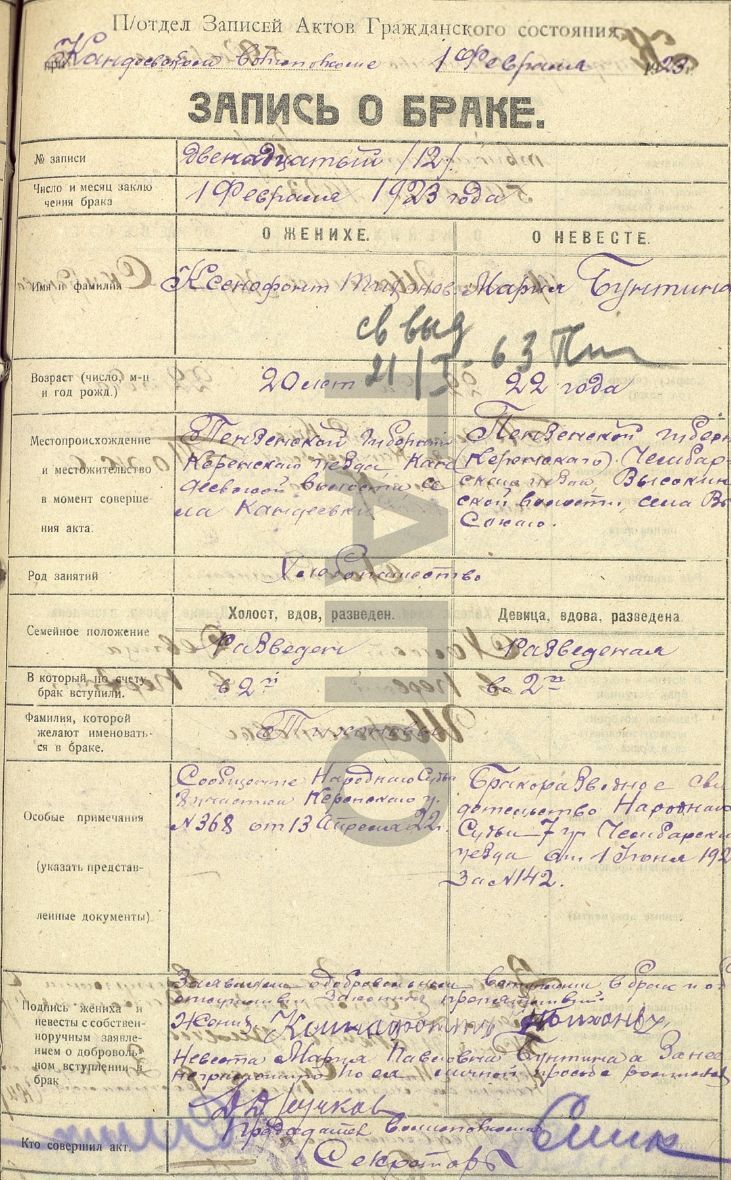 П/отдел Записей Актов Гражданского состояния
при Кандиевском волисполкоме 1 Февраля 1923 г.
ЗАПИСЬ О БРАКЕ.
№ записи
двенадцатый /12/
Число и месяц заклю
чения брака
1 Февраля 1923 года
О ЖЕНИХЕ.
О НЕВЕСТЕ.
Имя и фамилия
Ксенофонт Тихонов.
Мария Бунтина
св выд
21/I - 63
Возраст (число, м-ц
и год рожд.)
20 лет
22 года
Местопроисхождение
и местожительство
в момент соверше-
ния акта.
Пензенской Губернии
Керенского уезда, Кан
деевской волости се
ла Кандеевки
Пензенской губерн
Керенского) Чембар-
ского уезда, Высокин
ской волости, села Вы
сокаго.
Род занятий
Хлебопашество
Семейное положение
Холост, вдов, разведен.
Девица, вдова, разведена.
Разведен
Разведеная
В который по счету
брак вступили.
в 2й
во 2й
Фамилия, которой
желают именовать-
ся в браке.
Тихоновы
Особые примечания
(указать представ-
ленные документы)
Сообщение Народнаго Судьи
участка Керенского у.
№ 368 от 13 Апреля 22 г.
Бракоразводное сви
детельство Народнаго
Судьи 7 уч Чембарски
уезда от 1 Июня 192
За № 142.
Подпись жениха и
невесты с собствен-
норучным заявле-
нием о доброволь-
ном вступлении в
брак
Заявляем о добровольном вступлении в брак и об
отсутствии законных препятствий.
Жених Тихонов
Невеста Мария Павловна Бунтина а За нее
неграмотную по ея личной просьбе
Кто совершил акт.
Председатель Волисполкома
Секретарь
ГАПО